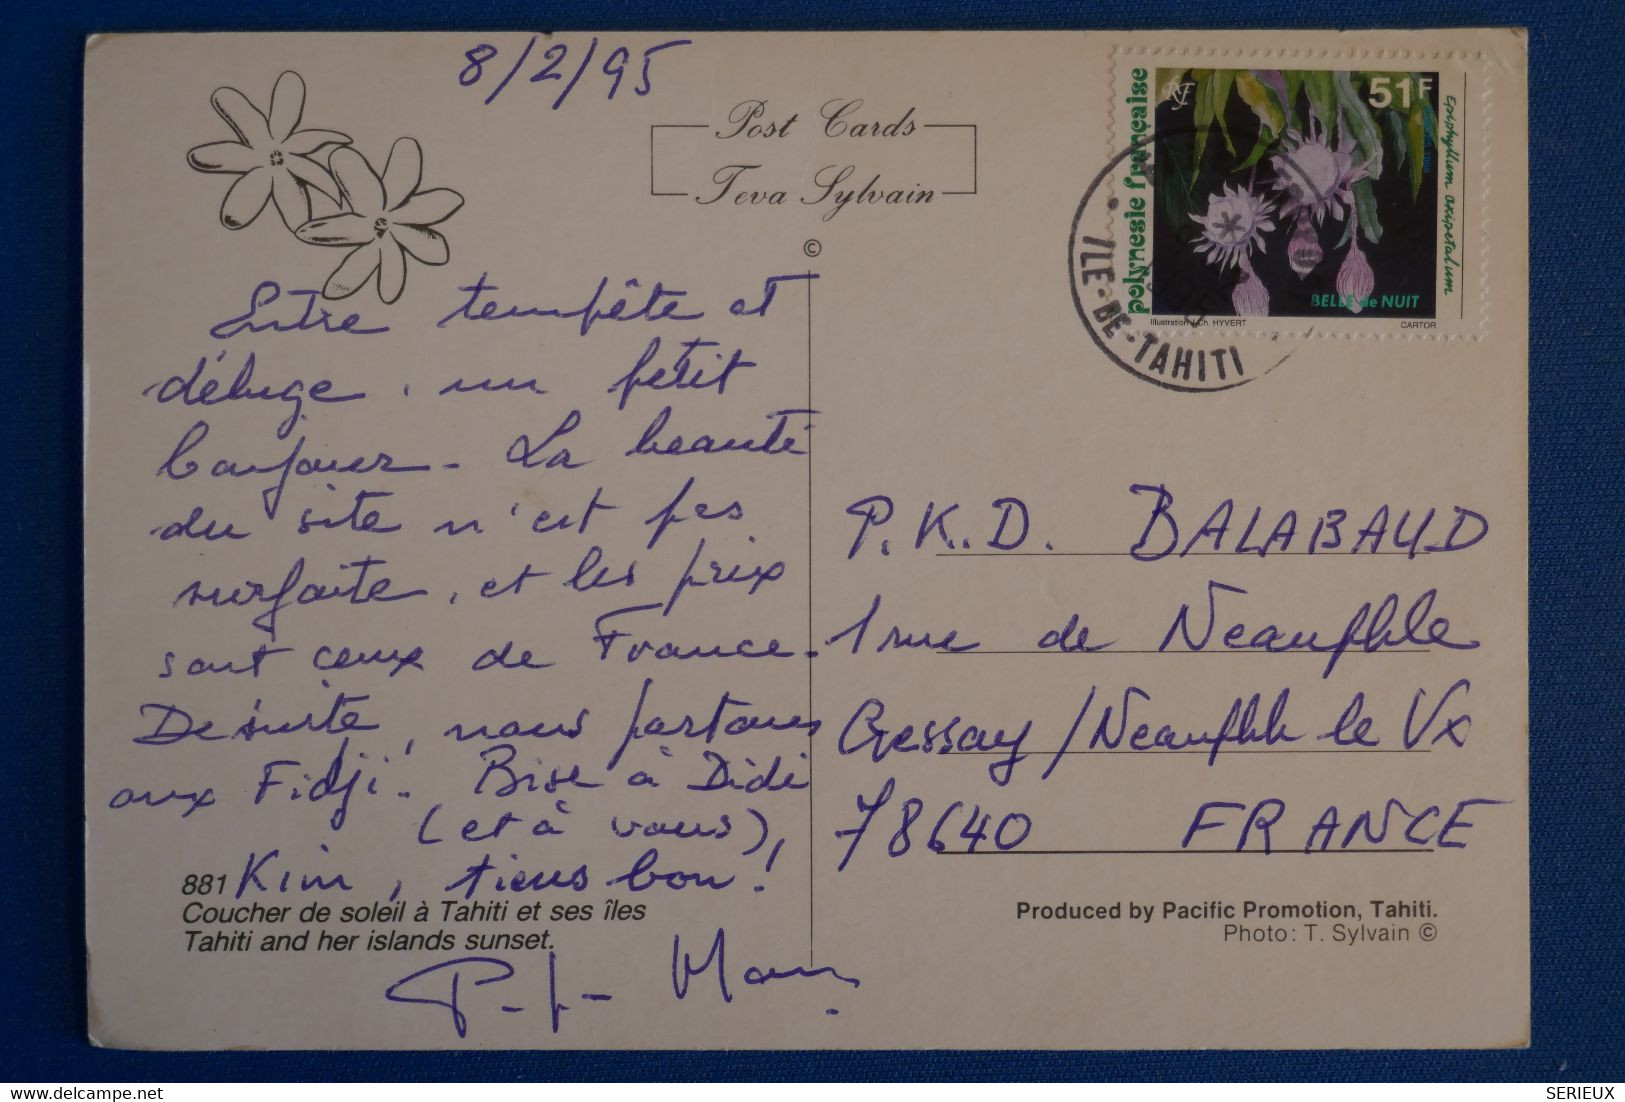 8/2/95
Post Cards
Teva Sylvain
©
polynésie française
RF
51F
Epiphyllum oxipetalum
BELLE de NUIT
Illustration J.Ch. HYVERT
CARTOR
ILE-DE-TAHITI
Entre tempête et
déluge, un petit
bonjour - La beauté
du site n'est pas
surfaite, et les prix
sont ceux de France.
De suite, nous partons
aux Fidji. Bise à Didi
(et à vous),
Kim, tiens bon!
P.K.D. BALABAUD
1 rue de Neauphle
Cressay/Neauphle le Vx
78640 FRANCE
881
Coucher de soleil à Tahiti et ses îles
Tahiti and her islands sunset.
Produced by Pacific Promotion, Tahiti.
Photo: T. Sylvain ©
SERIEUX